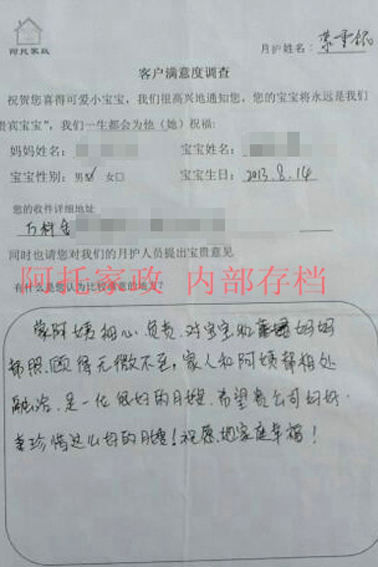 阿托家政
月护姓名：蒙
客户满意度调查
祝贺您喜得可爱小宝宝，我们很高兴地通知您，您的宝宝将永远是我们
贵宾宝宝”，我们一生都会为他（她）祝福：
妈妈姓名： 宝宝姓名：
宝宝性别：男☑ 女□ 宝宝生日：2013.8.14
您的收件详细地址
万科金
同时也请您对我们的月护人员提出宝贵意见
阿托家政 内部存档
有什么是您认为比较满意的地方？
蒙阿姨细心、负责、对宝宝和妈妈
都照顾得无微不至，家人和阿姨都相处
融洽，是一位很好的月嫂，希望贵公司好好
珍惜这么好的月嫂！祝愿她家庭幸福！